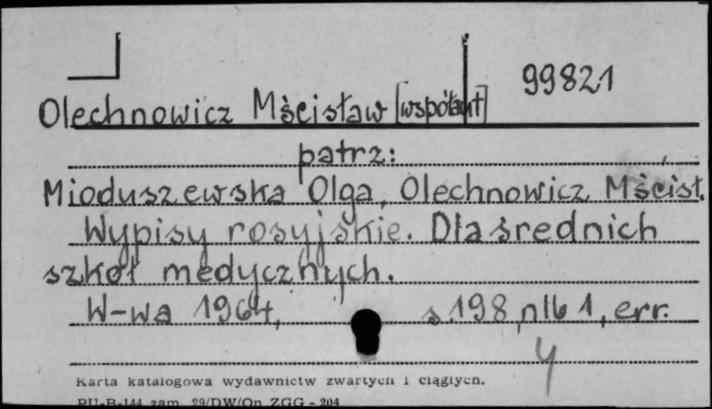 99821
Olechnowicz Mścisław [współaut]
patrz:
Mioduszewska Olga, Olechnowicz Mścisł.
Wypisy rosyjskie. Dla średnich
szkół medycznych.
W-wa 1964, s 198, nlb 1, err.
4
Karta katalogowa wydawnictw zwartych i ciągłych.
PU-B-144 zam. 29/DW/On ZGG - 204